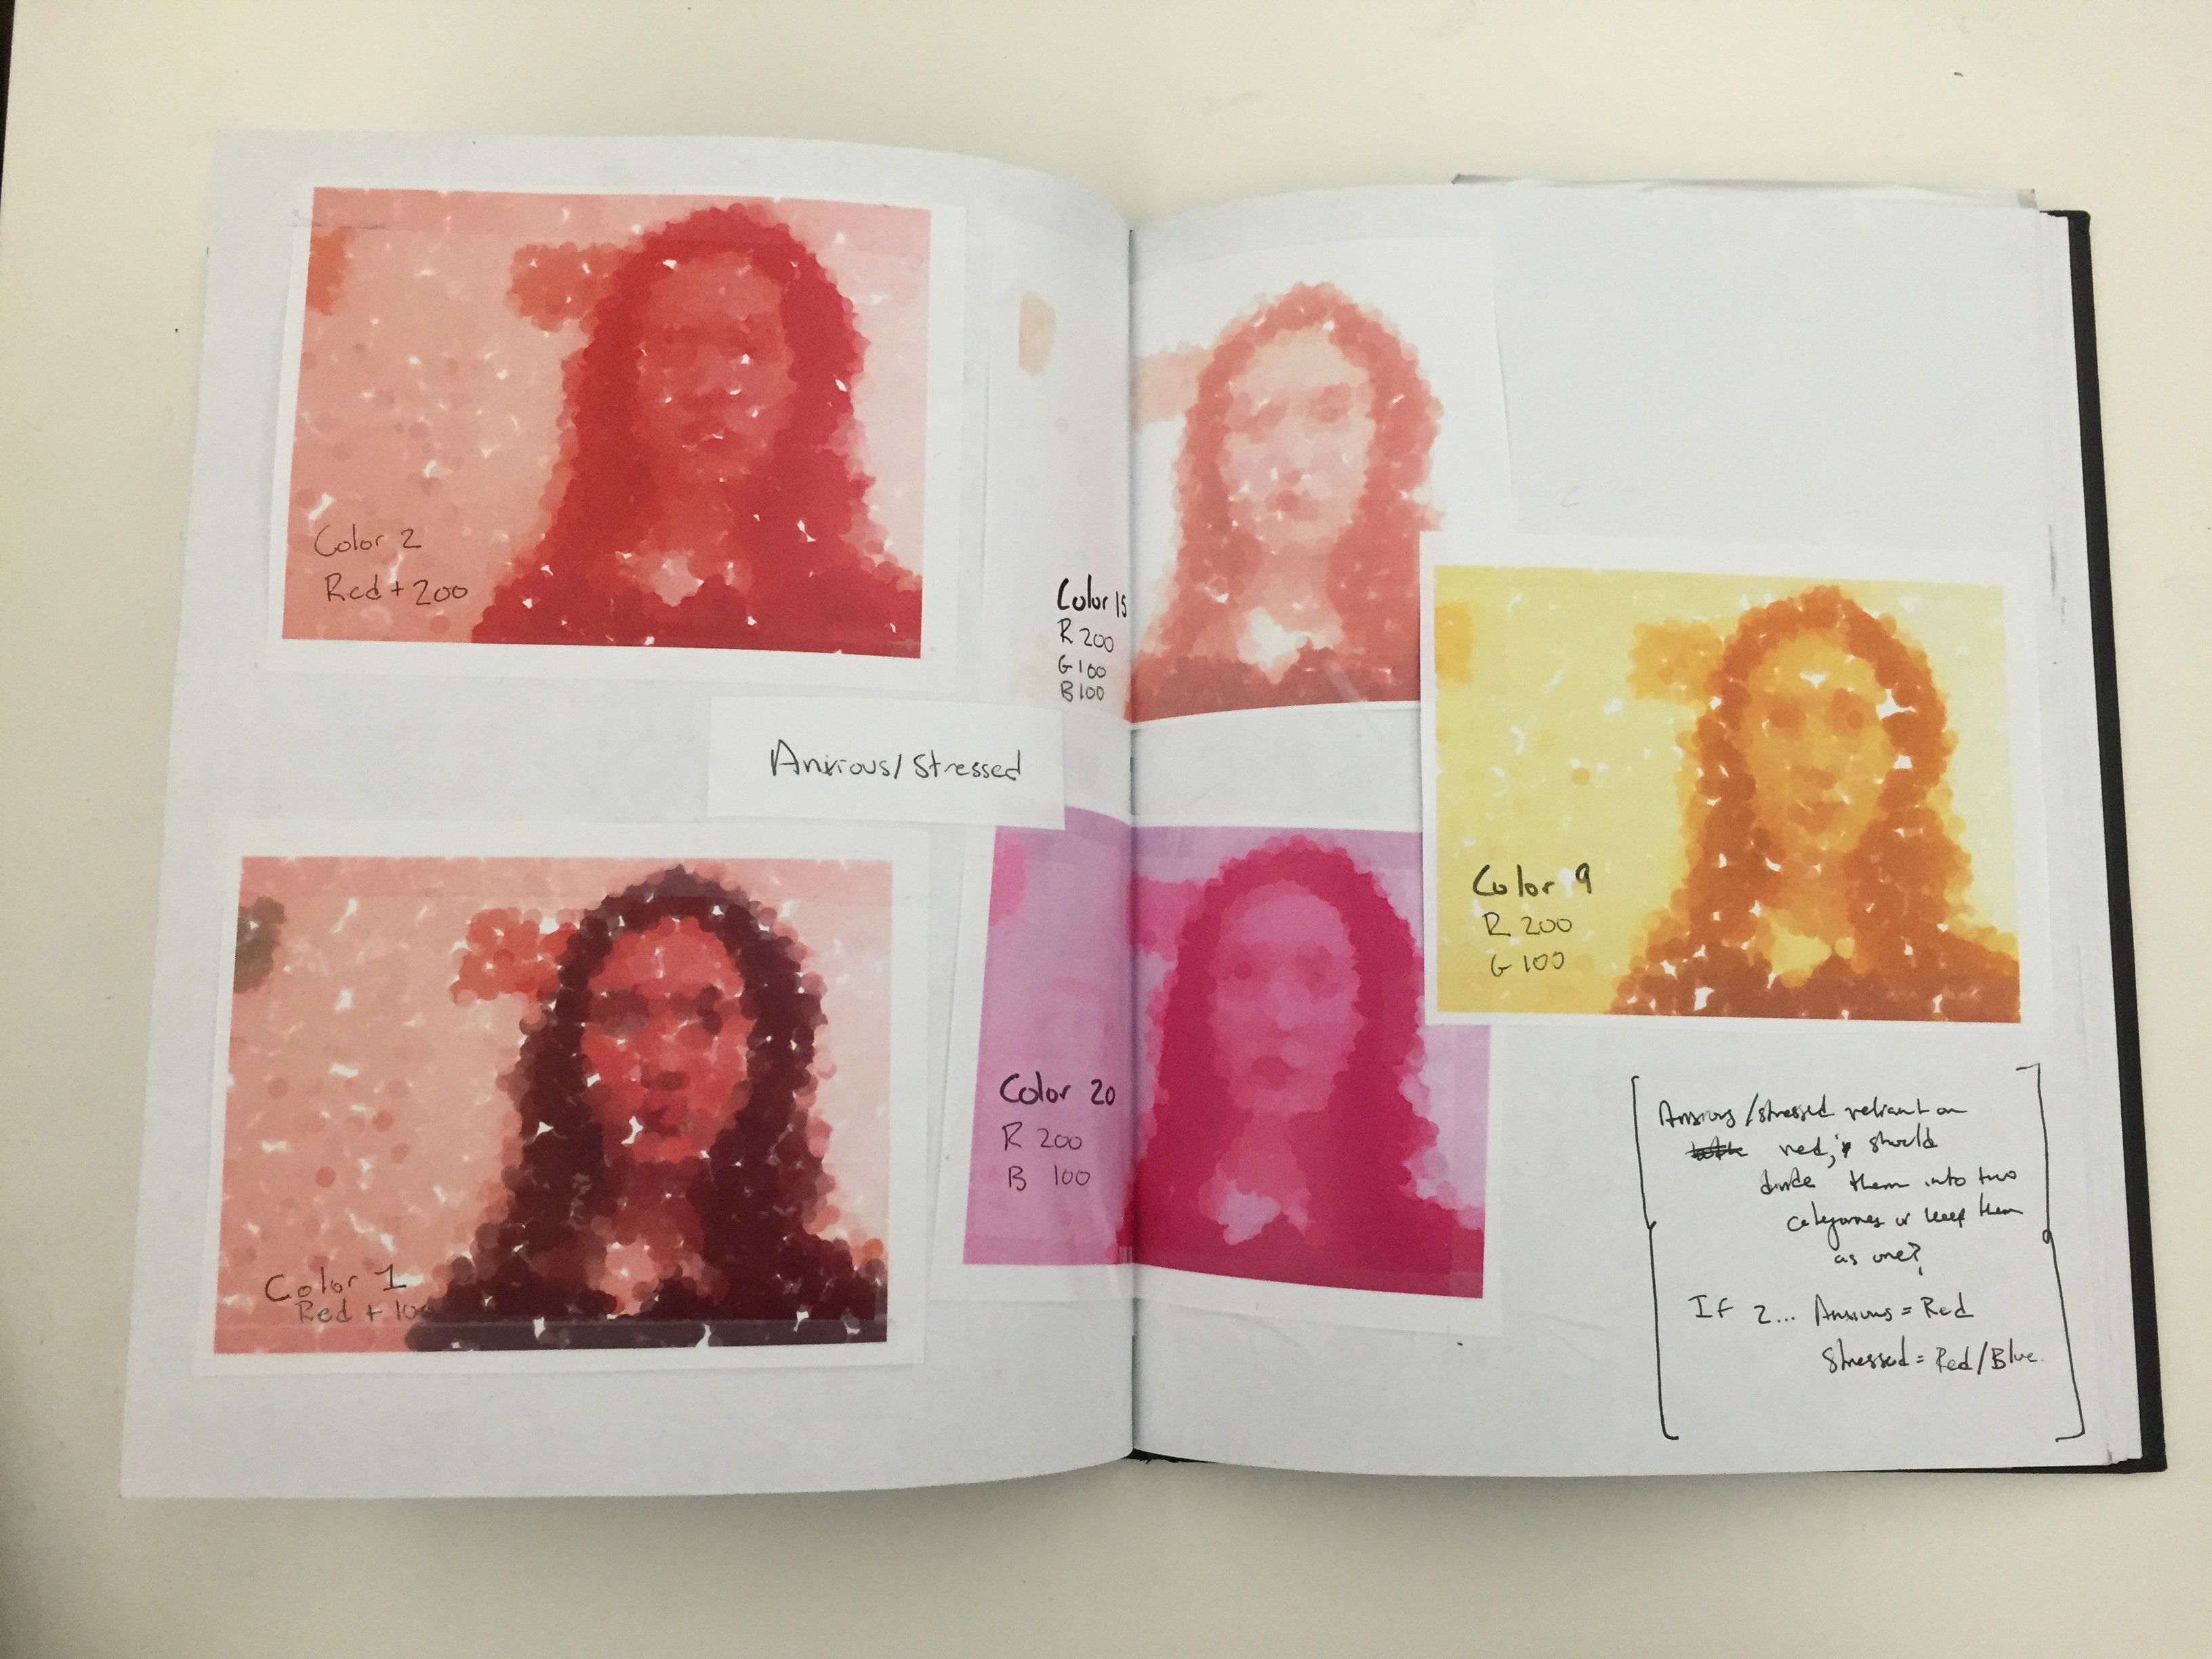 Color 2
Red + 200
Color 15
R 200
G 100
B 100
Anxious/Stressed
Color 9
R 200
G 100
Color 1
Red + 100
Color 20
R 200
B 100
Anxious/stressed reliant on
red, should
divide them into two
categories or keep them
as one?
If 2... Anxious = Red
Stressed = Red/Blue.